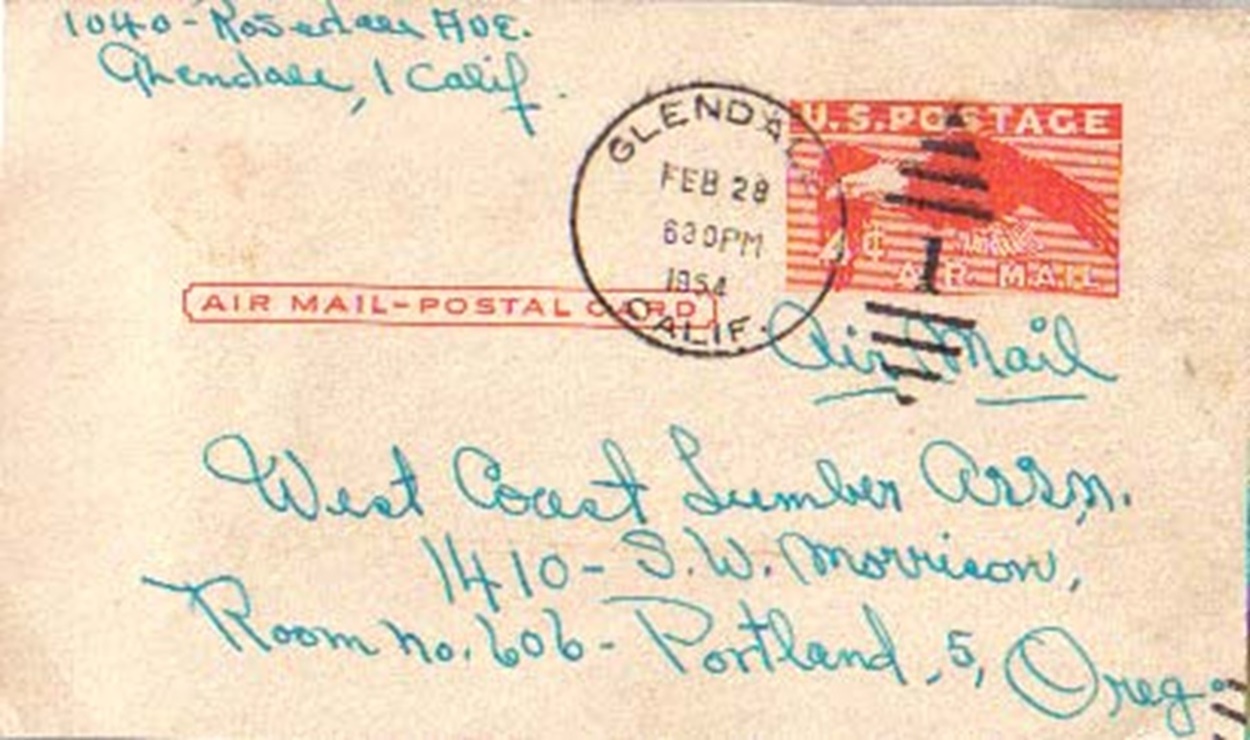 1040-Rosedale Ave.
Glendale, 1 Calif.
GLENDALE
FEB 28
630PM
1954
CALIF.
U.S.POSTAGE
4¢
AIR MAIL
1
AIR MAIL-POSTAL CARD
Air Mail
West Coast Lumber Assn.
1410- S.W. Morrison,
Room no. 606- Portland, 5, Oreg.